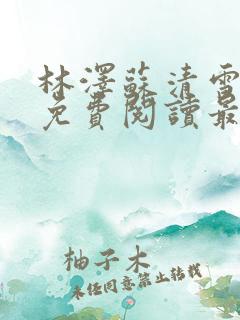 林澤蘇清雪
免費閱讀最
柚子木
未经同意禁止转载